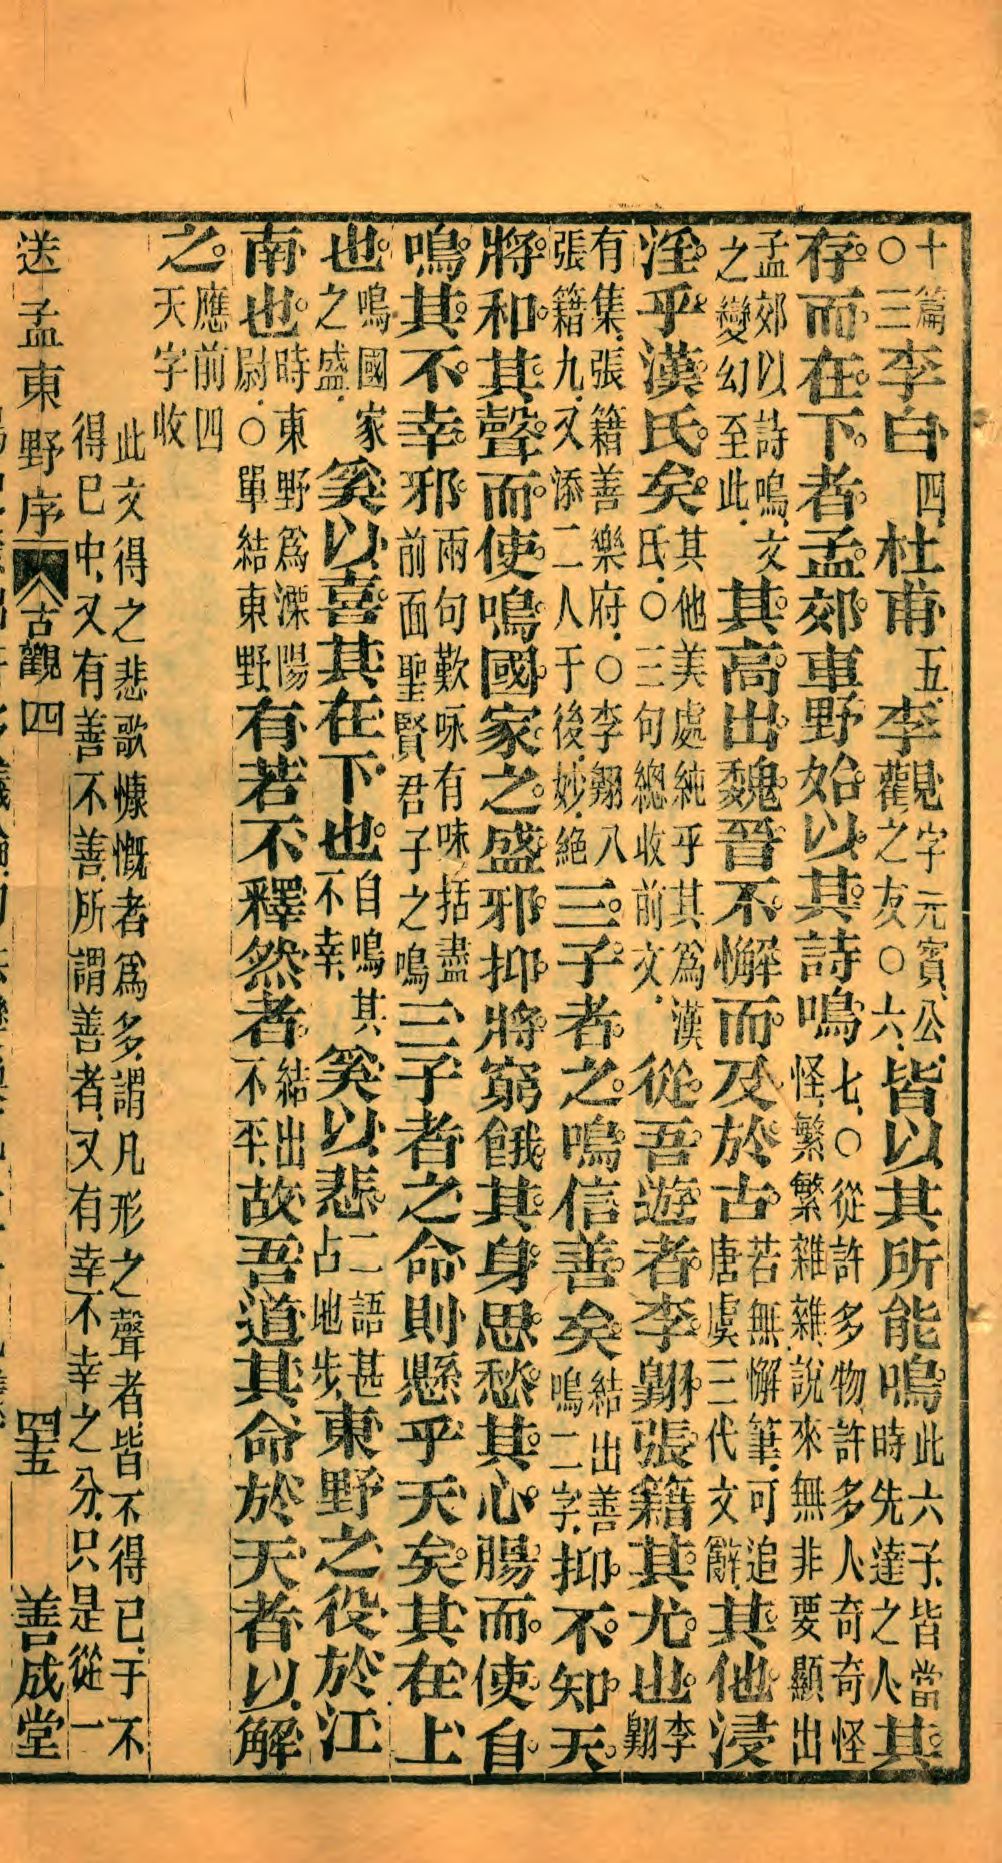 十篇○三李白四杜甫五李觀字元賓公之友○六皆以其所能鳴此六子皆當時先達之人其
存而在下者孟郊東野始以其詩鳴七○從許多物許多人奇奇怪怪繁繁雜雜說來無非要顯出
孟郊以詩鳴文之變幻至此其高出魏晉不懈而及於古若無懈筆可追唐虞三代文辭其他浸
淫乎漢氏矣其他美處純乎其為漢氏○三句總收前文從吾遊者李翺張籍其尤也李翺
有集張籍善樂府○李翺八張籍九又添二人于後妙絕三子者之鳴信善矣結出善鳴二字抑不知天
將和其聲而使鳴國家之盛邪抑將窮餓其身思愁其心腸而使自
鳴其不幸邪兩句歎咏有味括盡前面聖賢君子之鳴三子者之命則懸乎天矣其在上
也鳴國家之盛奚以喜其在下也自鳴其不幸奚以悲二語甚占地步東野之役於江
南也時東野為溧陽尉○單結東野有若不釋然者結出不平故吾道其命於天者以解
之應前四天字收
此文得之悲歌慷慨者為多謂凡形之聲者皆不得已于不
得已中又有善不善所謂善者又有幸不幸之分只是從一
送孟東野序 古觀四 四五 善成堂